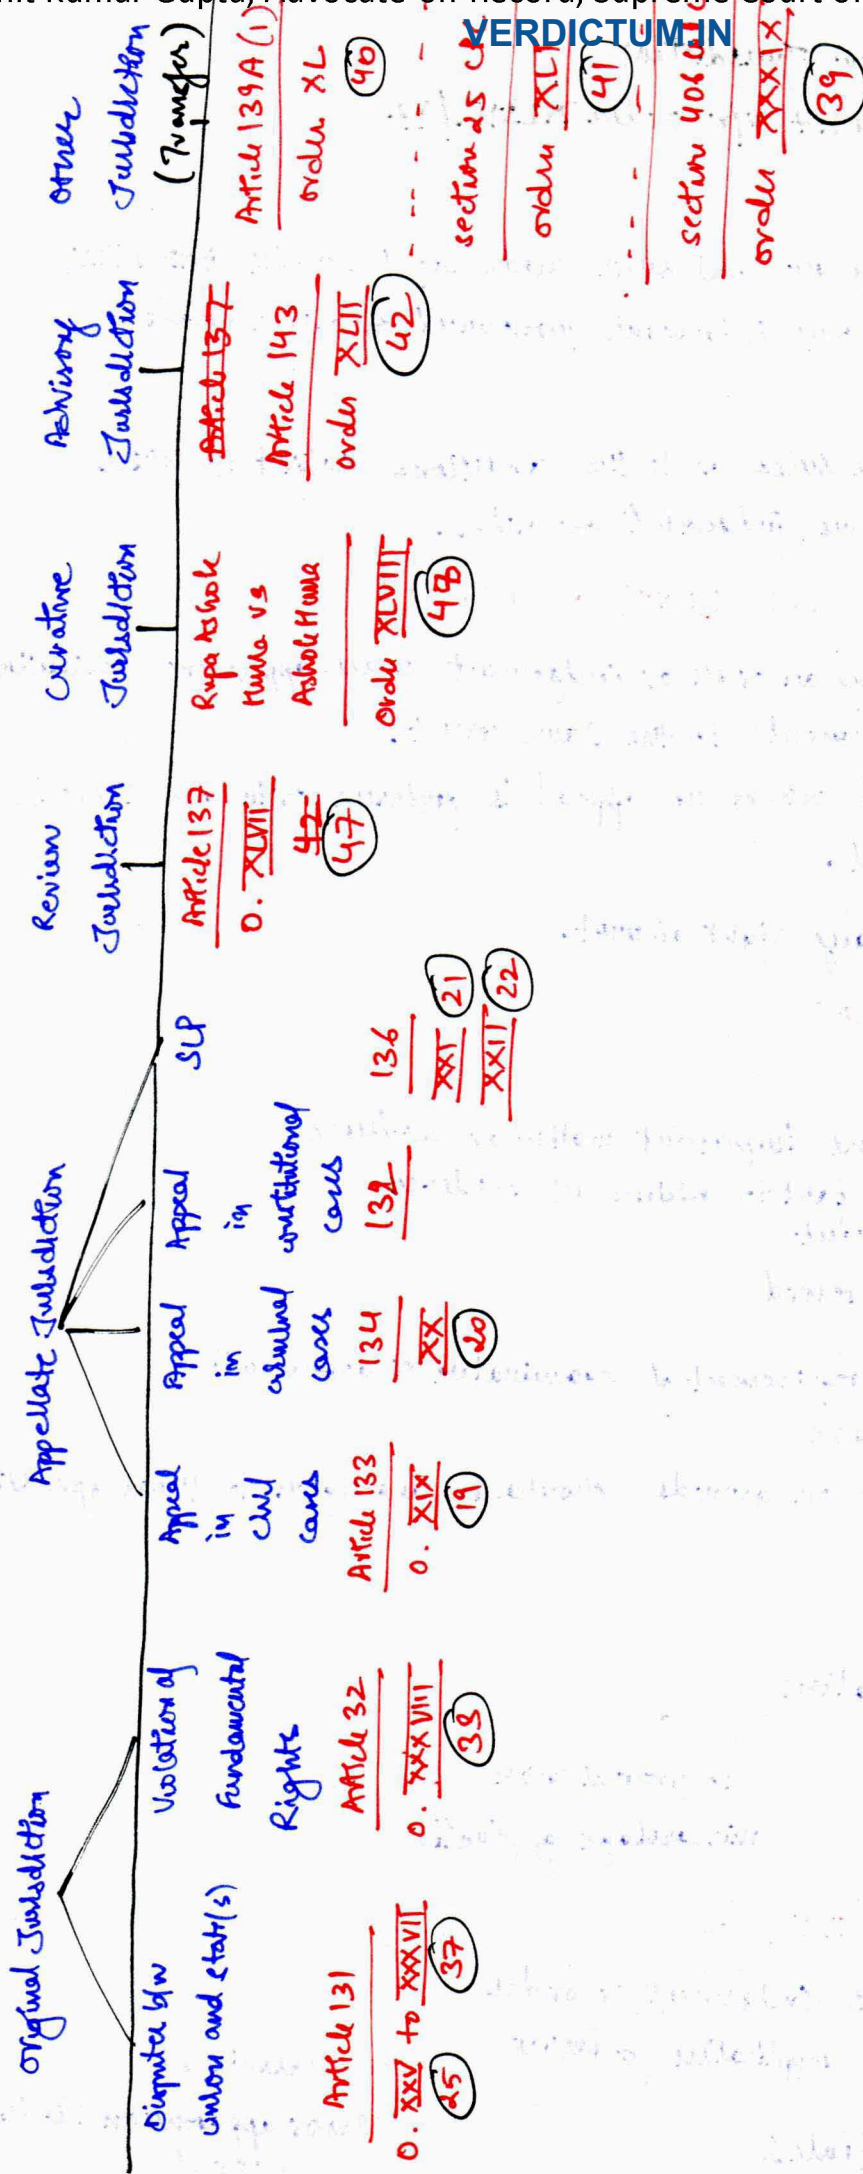 nit Kumar Gupta, Advocate-on-Record, Supreme Court of
VERDICTUM.IN
Original Jurisdiction
Disputes b/w
union and state(s)
Article 131
O. XXV to XXXVII
25 37
Violation of
Fundamental
Rights
Article 32
O. XXXVIII
38
Appellate Jurisdiction
Appeal
in
civil
cases
Article 133
O. XIX
19
Appeal
in
criminal
cases
134
XX
20
Appeal
in
constitutional
cases
132
SLP
136
XXI 21
XXII 22
Review
Jurisdiction
Article 137
O. XLVII
42
47
Curative
Jurisdiction
Rupa Ashok
Hurra vs
Ashok Hurra
Order XLVIII
48
Advisory
Jurisdiction
Article 137
Article 143
Order XLII
42
Other
Jurisdiction
(Transfer)
Article 139A (1)
Order XL
40
section 25
order XLI
41
section 406
order XXXIX
39